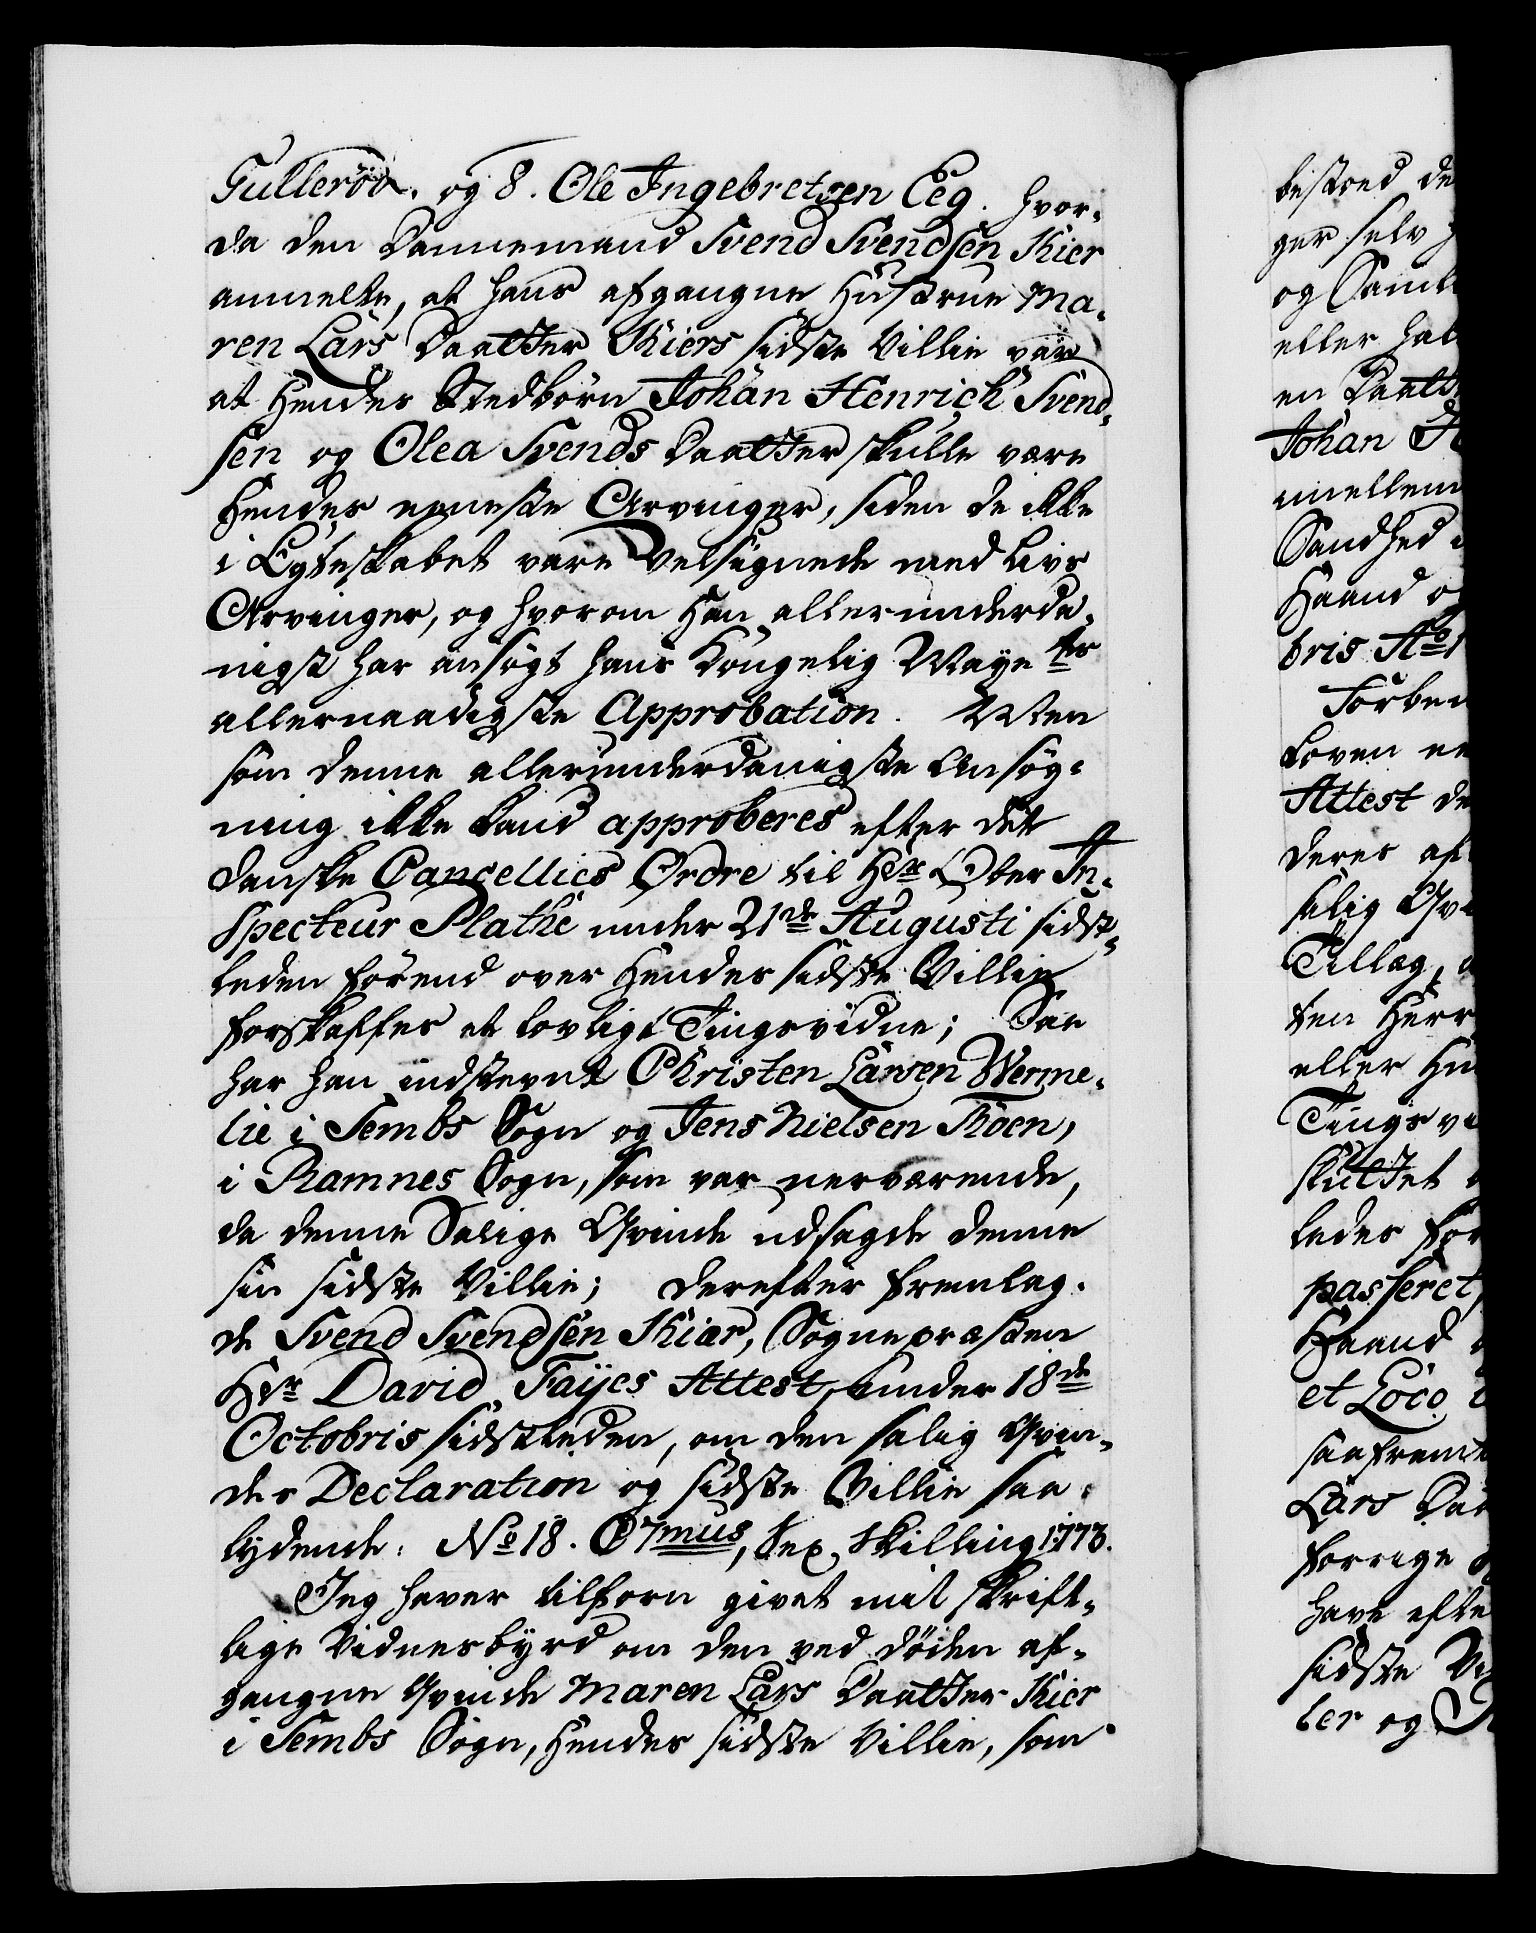 Gulleröd. og 8. Ole Ingebretsen Eeg. hvor-
da den Dannemand Svend Svendsen Kier
anmelte, at hans afgangne Hustrue Ma-
ren Lars Daatter Kiers sidste Villie var
at Hendes Stedbörn Johan Henrich Svend-
sen og Olea Svends Daatter skulle være
Hendes eeneste Arvinger, siden de ikke
i Egteskabet vare Velsignede med Livs
Arvinger, og hvorom Han allerunderda-
nigst har ansögt hans Kongelig Maye ts
allernaadigste Approbation. Men
som denne allerunderdanigste Ansög-
ning ikke kand approberes efter det
danske Cancellies Ordre til Hr Ober In-
specteur Plathe under 21de Augusti sidst-
leden förend over Hendes sidste Villie
forskaffes et lovligt Tingsvidne; Saa
har han indstevnt Christen Larsen Werme-
lie i Sembs Sogn og Jens Nielsen Skoen,
i Ramnes Sogn, som var nerværende,
da denne Salige Qvinde udsagde denne
sin sidste Villie; derefter fremlag-
de Svend Svendsen Kiær, Sognepræsten
Hr David Fayes Attest, under 18de
Octobris sidstleden, om den salig Qvin-
des Declaration og sidste Villie saa-
lydende: No 18. C7mus, Sex Skilling 1773.
Jeg haver tilforn givet mit skrift-
lige Vidnesbyrd om den ved döden af-
gangne Qvinde Maren Lars Daatter Kier
i Sembs Sogn, Hendes sidste Villie, som
bestoed de
ger selv
og Saml
eller hal
en Daatt
Johan H
imellem
Sandhed
Haand o
bris Ao 1
Forben
Loven
Attest de
deres af
salig Qvi
Tillæg,
ten Herr
eller Hu
Tings vi
sluttet
ledes for
passeret,
Haand
et Loco
saafremt
Lars Daa
forrige
have efte
sidste Vi
ler og